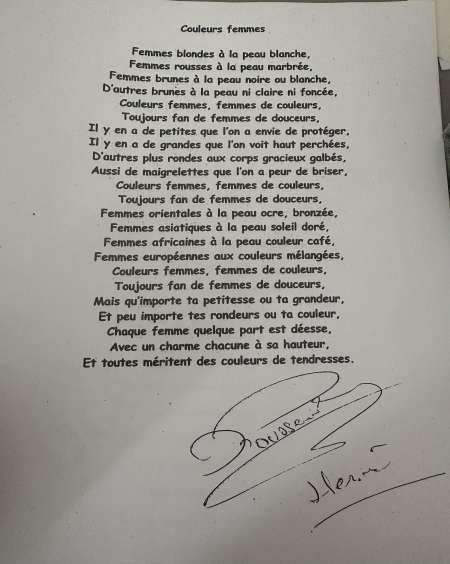 Couleurs femmes
Femmes blondes à la peau blanche,
Femmes rousses à la peau marbrée,
Femmes brunes à la peau noire ou blanche,
D'autres brunes à la peau ni claire ni foncée,
Couleurs femmes, femmes de couleurs,
Toujours fan de femmes de douceurs,
Il y en a de petites que l'on a envie de protéger,
Il y en a de grandes que l'on voit haut perchées,
D'autres plus rondes aux corps gracieux galbés,
Aussi de maigrelettes que l'on a peur de briser,
Couleurs femmes, femmes de couleurs,
Toujours fan de femmes de douceurs,
Femmes orientales à la peau ocre, bronzée,
Femmes asiatiques à la peau soleil doré,
Femmes africaines à la peau couleur café,
Femmes européennes aux couleurs mélangées,
Couleurs femmes, femmes de couleurs,
Toujours fan de femmes de douceurs,
Mais qu'importe ta petitesse ou ta grandeur,
Et peu importe tes rondeurs ou ta couleur,
Chaque femme quelque part est déesse,
Avec un charme chacune à sa hauteur,
Et toutes méritent des couleurs de tendresses.